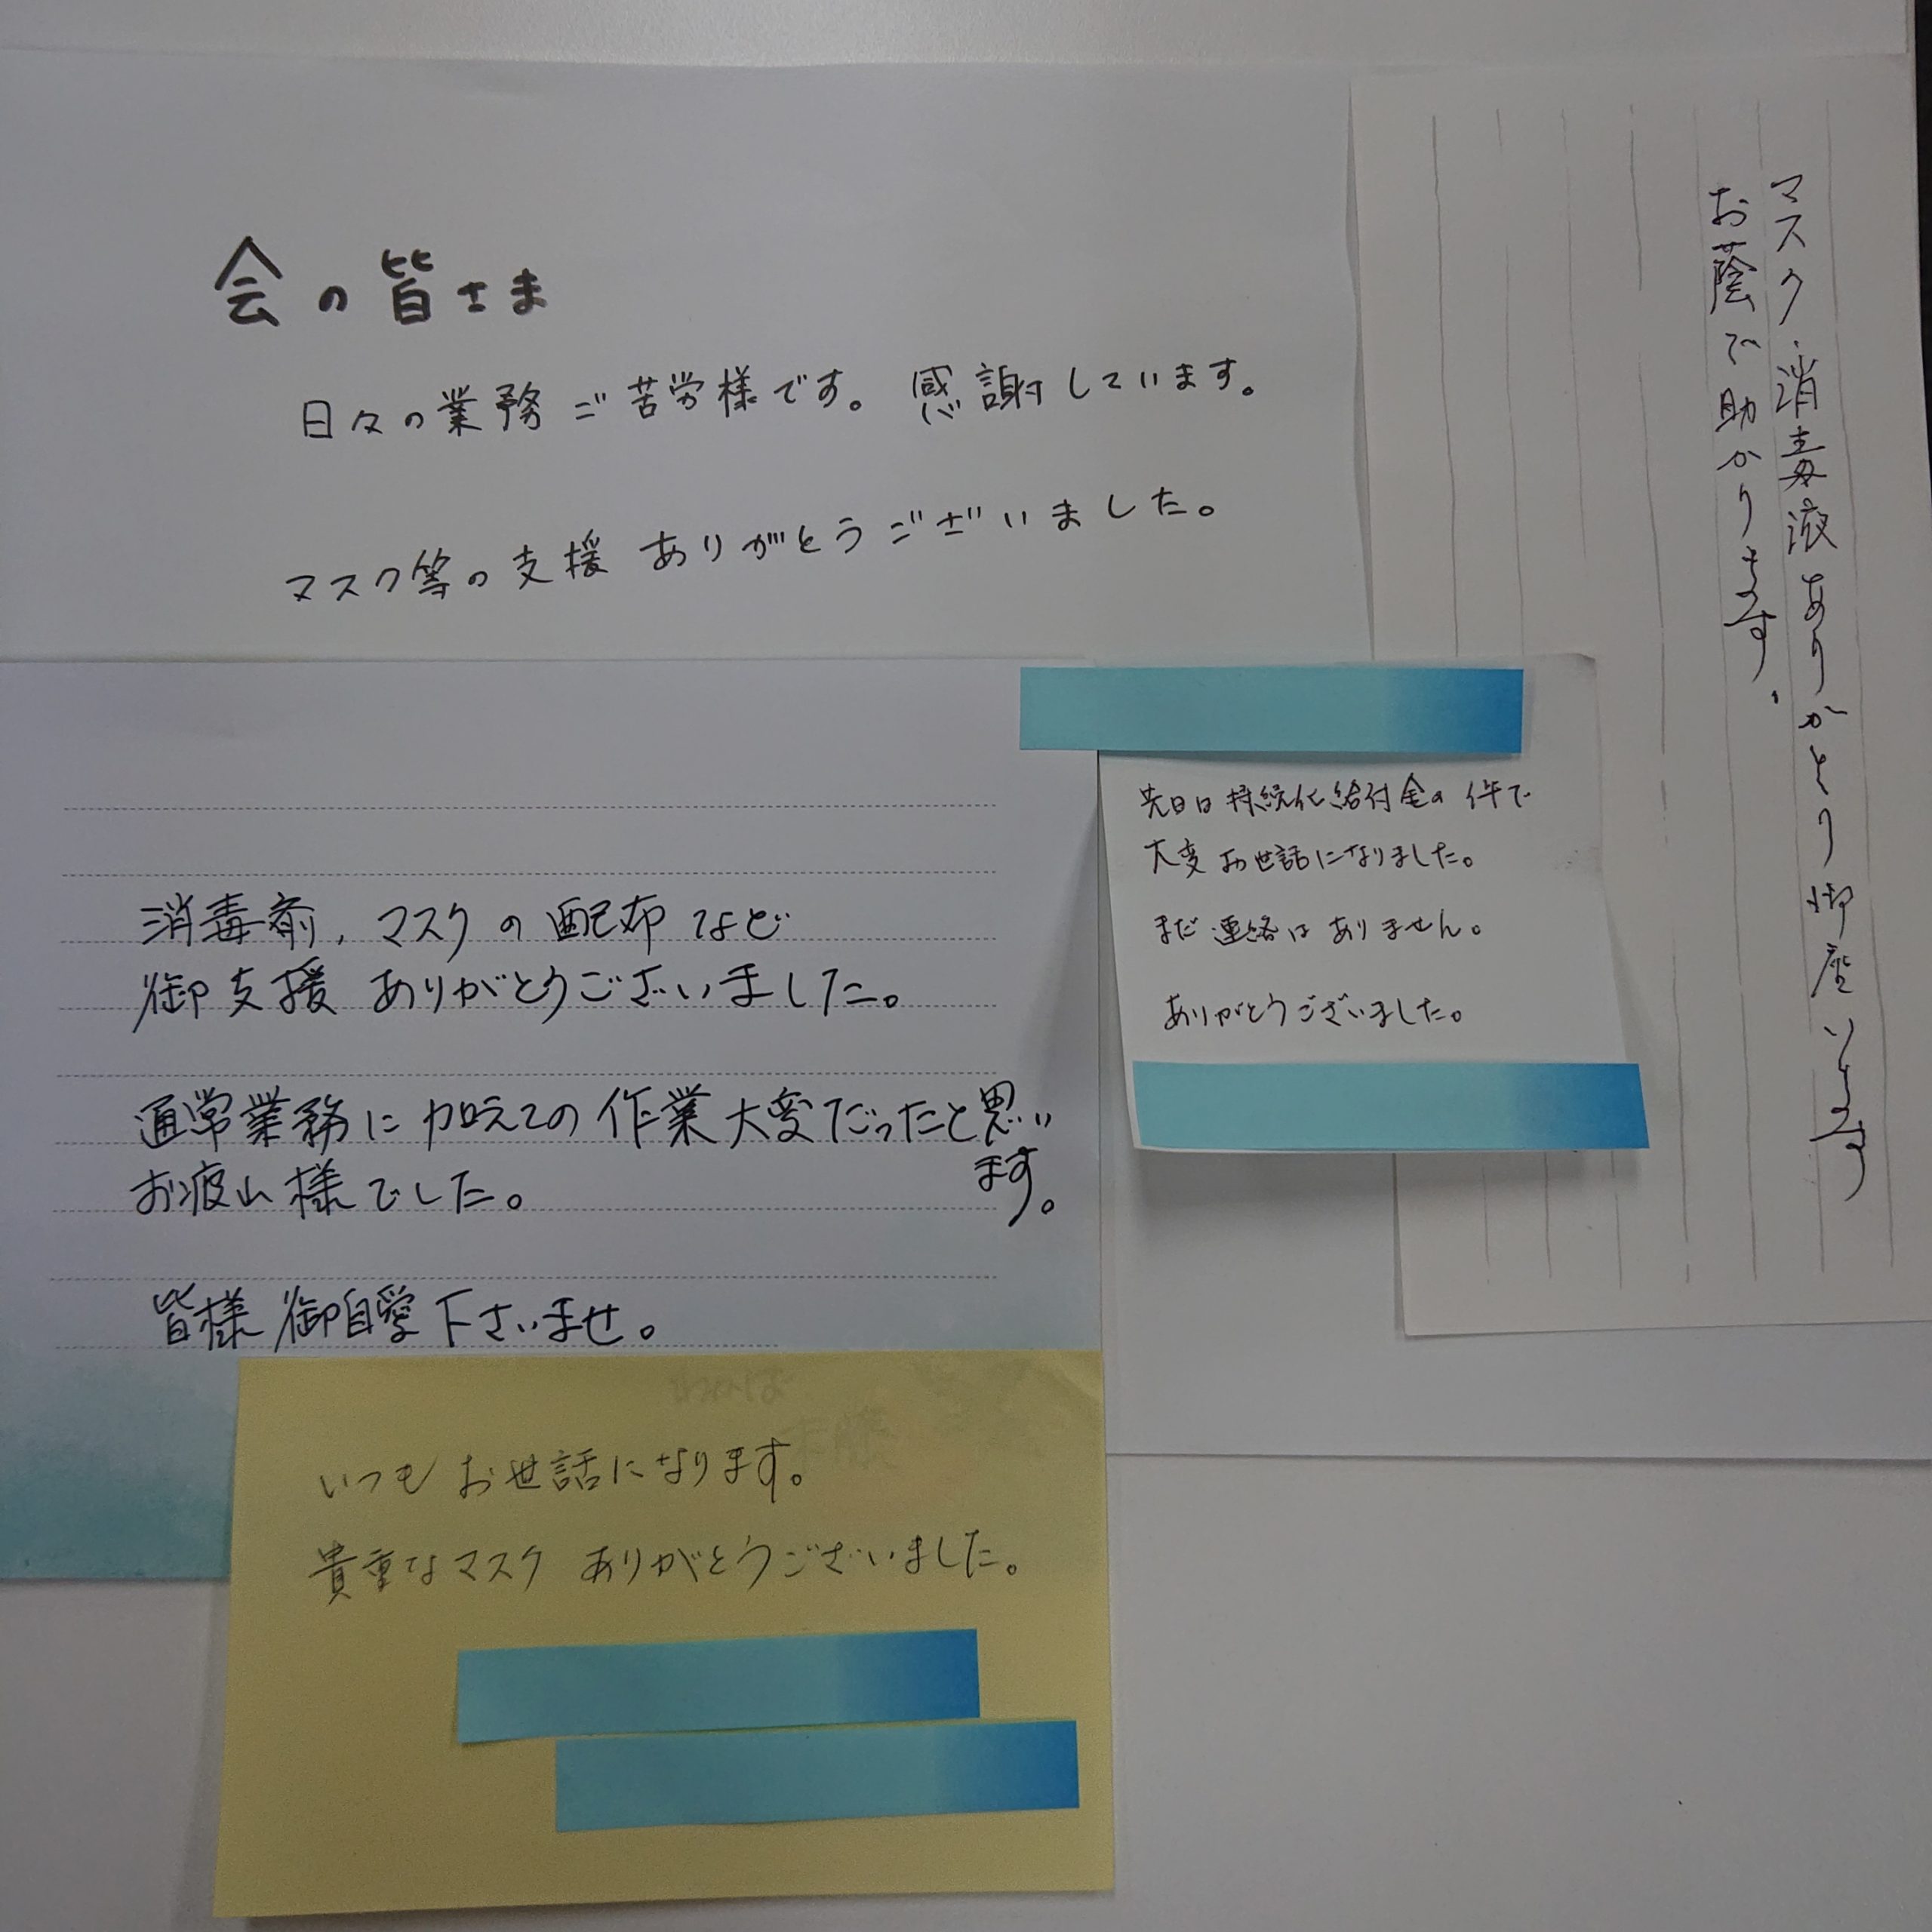 会の皆さま
日々の業務ご苦労様です。感謝しています。
マスク等の支援ありがとうございました。
マスク・消毒液ありがとう御座います
お蔭で助かります.
先日は持続化給付金の件で
大変お世話になりました。
まだ連絡はありません。
ありがとうございました。
消毒剤,マスクの配布など
御支援ありがとうございました。
通常業務に加えての作業大変だったと思い
ます。
お疲れ様でした。
皆様御自愛下さいませ。
いつもお世話になります。
貴重なマスクありがとうございました。